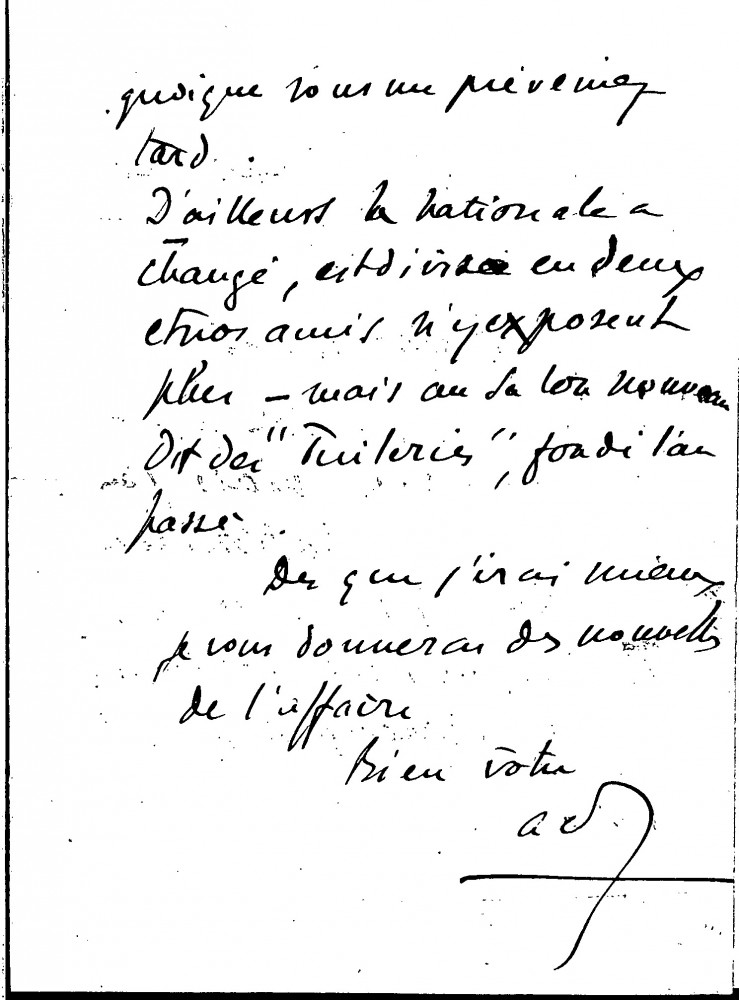 quoique vous me préveniez
tard.
D'ailleurs la nationale a
changé, est divisée en deux
et nos amis n'y exposent
plus – mais au Salon nouveau
dit des "Tuileries", fondé l'an
passé.
Dès que j'irai mieux
je vous donnerai des nouvelles
de l'affaire
Bien votre